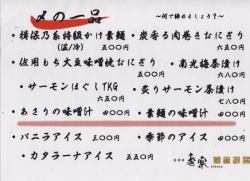 〆の一品
～何で締めましょう？～
・揖保乃糸特級かけ素麺
(温/冷) 五〇〇円
・炭香る肉巻きおにぎり
六〇〇円
・佐用もち大豆味噌焼おにぎり
五五〇円
・南光梅茶漬け
六五〇円
・サーモンほぐしTKG
六五〇円
・炙りサーモン茶漬け
七五〇円
・あさりの味噌汁 四〇〇円
・素麺の味噌汁 四〇〇円
・バニラアイス 三〇〇円
・季節のアイス 四〇〇円
・カタラーナアイス 五五〇円